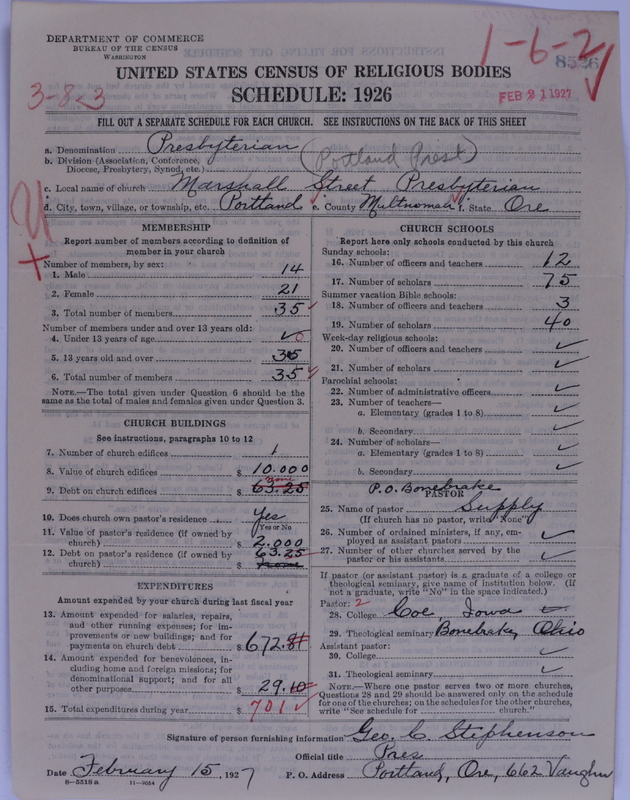 DEPARTMENT OF COMMERCE
BUREAU OF THE CENSUS
WASHINGTON
1-6-2
8526
UNITED STATES CENSUS OF RELIGIOUS BODIES
3-8-3
SCHEDULE: 1926
FEB 21 1927
FILL OUT A SEPARATE SCHEDULE FOR EACH CHURCH. SEE INSTRUCTIONS ON THE BACK OF THIS SHEET
a. Denomination Presbyterian
b. Division (Association, Conference, Diocese, Presbytery, Synod, etc.) (Portland Prest)
c. Local name of church Marshall Street Presbyterian
d. City, town, village, or township, etc. Portland e. County Multnomah f. State Ore
MEMBERSHIP
Report number of members according to definition of member in your church
Number of members, by sex:
1. Male 14
2. Female 21
3. Total number of members 35
Number of members under and over 13 years old:
4. Under 13 years of age 0
5. 13 years old and over 35
6. Total number of members 35
NOTE.—The total given under Question 6 should be the same as the total of males and females given under Question 3.
CHURCH BUILDINGS
See instructions, paragraphs 10 to 12
7. Number of church edifices 1
8. Value of church edifices $ 10.000
none
9. Debt on church edifices $ 63.25
10. Does church own pastor's residence Yes
Yes or No
11. Value of pastor's residence (if owned by church) $ 2.000
12. Debt on pastor's residence (if owned by church) $ 63.25
none
EXPENDITURES
Amount expended by your church during last fiscal year
13. Amount expended for salaries, repairs, and other running expenses; for improvements or new buildings; and for payments on church debt $ 672.81
14. Amount expended for benevolences, including home and foreign missions; for denominational support; and for all other purposes $ 29.10
15. Total expenditures during year $ 701
CHURCH SCHOOLS
Report here only schools conducted by this church
Sunday schools:
16. Number of officers and teachers 12
17. Number of scholars 75
Summer vacation Bible schools:
18. Number of officers and teachers 3
19. Number of scholars 40
Week-day religious schools:
20. Number of officers and teachers
21. Number of scholars
Parochial schools:
22. Number of administrative officers
23. Number of teachers—
a. Elementary (grades 1 to 8)
b. Secondary
24. Number of scholars—
a. Elementary (grades 1 to 8)
b. Secondary
P.O. Bonebrake
PASTOR
25. Name of pastor Supply
(If church has no pastor, write "None")
26. Number of ordained ministers, if any, employed as assistant pastors
27. Number of other churches served by the pastor or his assistants
If pastor (or assistant pastor) is a graduate of a college or theological seminary, give name of institution below. (If not a graduate, write "No" in the space indicated.)
Pastor: 2
28. College Coe, Iowa
29. Theological seminary Bonebrake, Ohio
Assistant pastor:
30. College
31. Theological seminary
NOTE.—Where one pastor serves two or more churches, Questions 28 and 29 should be answered only on the schedule for one of the churches; on the schedules for the other churches, write "See schedule for church."
Signature of person furnishing information Geo. C. Stephenson
Official title Pres
Date February 15, 1927 P. O. Address Portland, Ore, 662 Vaughn
8—5518 a 11—9054